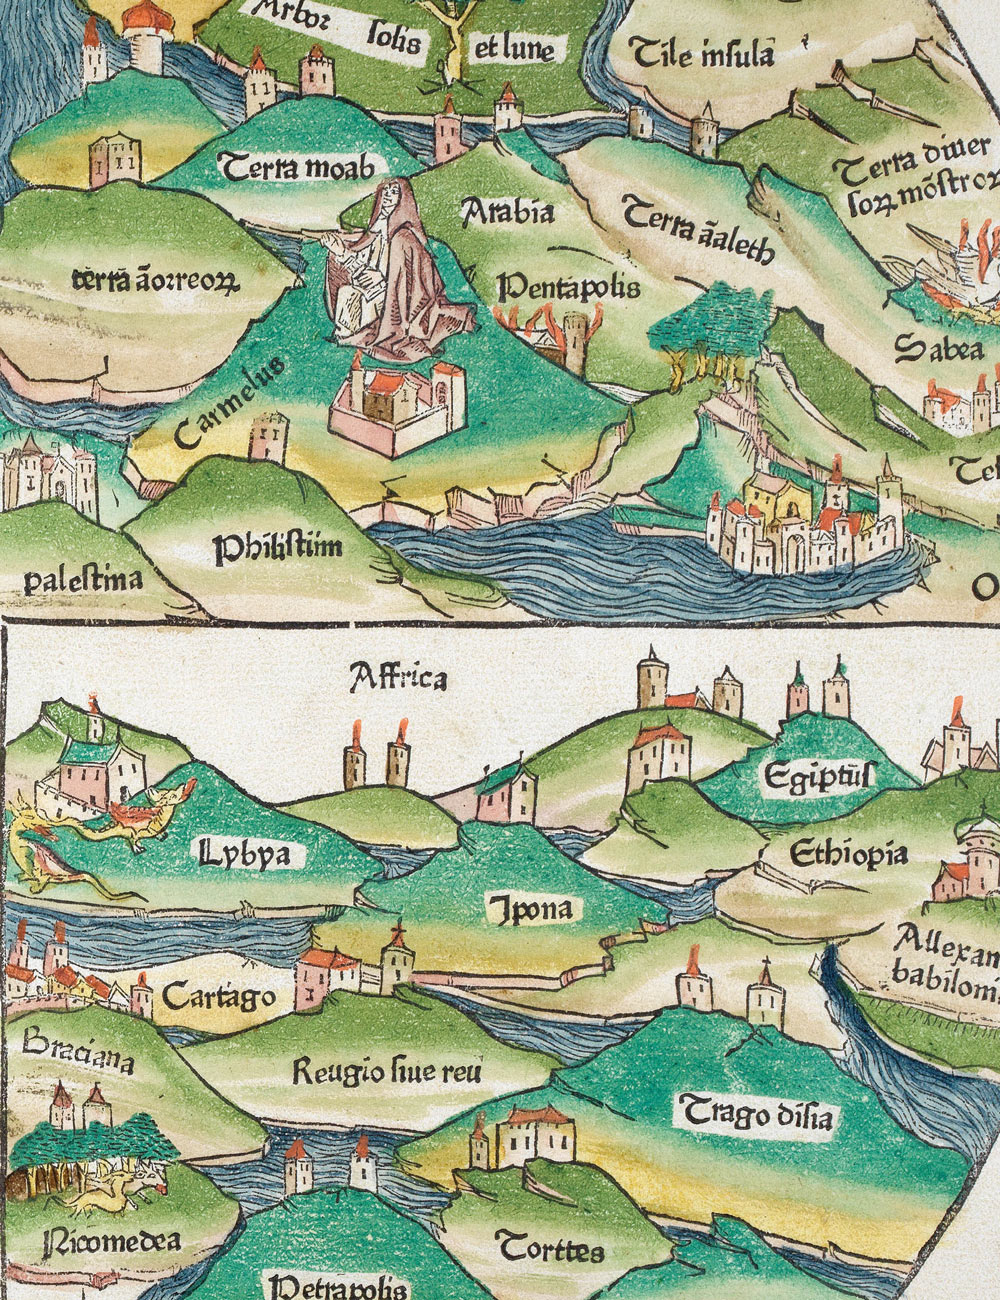 Arbor solis et lune
Tile insulā
Terra moab
Terra diuer
soꝝ mōstroꝝ
Arabia
Terra āaleth
terra āorreoꝝ
Pentapolis
Sabea
Carmelus
Philistiim
palestina
O
Affrica
Egiptūs
Lybya
Ethiopia
Ipona
Allexan
babiloni
Cartago
Braciana
Reugio siue reu
Trago disia
Nicomedea
Torttes
Petrapolis